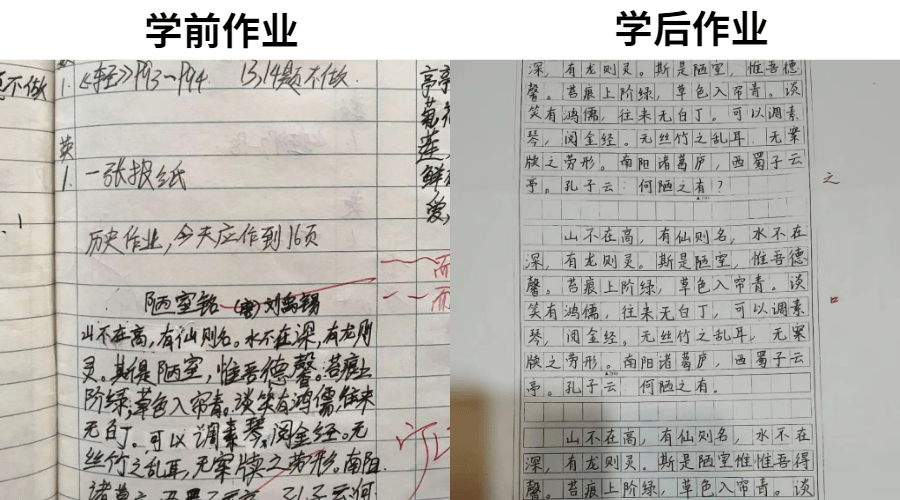 学前作业
不做
1.
《轻》P93~P94 13,14题不做.
英
1. 一张报纸
历史作业,今天应作到16页
陋室铭 (唐)刘禹锡
山不在高,有仙则名。水不在深,有龙则
灵。斯是陋室,惟吾德馨。苔痕上
阶绿,草色入帘青。谈笑有鸿儒,往来
无白丁。可以调素琴,阅金经。无
丝竹之乱耳,无案牍之劳形。南阳
诸葛
孔子云何
亭
葡
莲
鲜
爱,
学后作业
深,有龙则灵。斯是陋室,惟吾德
馨。苔痕上阶绿,草色入帘青。谈
笑有鸿儒,往来无白丁。可以调素
琴,阅金经。无丝竹之乱耳,无案
牍之劳形。南阳诸葛庐,西蜀子云
亭。孔子云:何陋之有?
之
山不在高,有仙则名,水不在
深,有龙则灵。斯是陋室,惟吾德
馨。苔痕上阶绿,草色入帘青。谈
笑有鸿儒,往来无白丁,可以调素
琴,阅金经。无丝竹之乱耳,无案
牍之劳形。南阳诸葛庐,西蜀子云
亭。孔子云:何陋之有。
山不在高,有仙则名,水不在
深,有龙则灵。斯是陋室惟惟吾得
馨。苔痕上阶绿,草色入帘青。谈